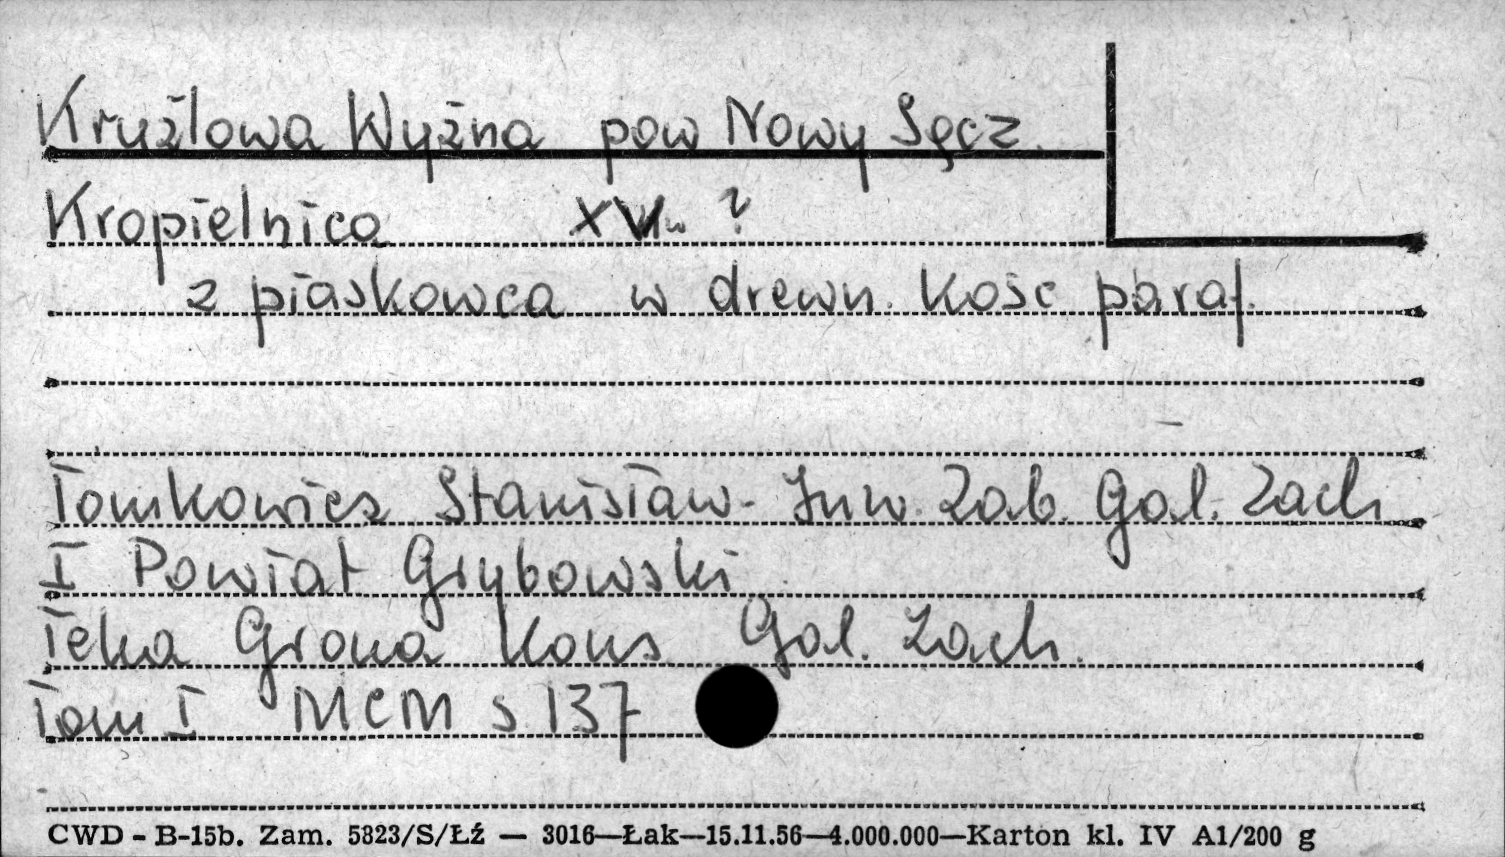 Krużlowa Wyżna pow Nowy Sącz.
Kropielnica XVIw ?
z piaskowca w drewn. Kośc paraf.
Tomkowicz Stanisław - Inw. Zab. Gal. Zach
I Powiat Grybowski
Teka Grona Kons Gal. Zach.
Tom I MCM s 137
CWD - B-15b. Zam. 5823/S/Łź — 3016—Łak—15.11.56—4.000.000—Karton kl. IV A1/200 g